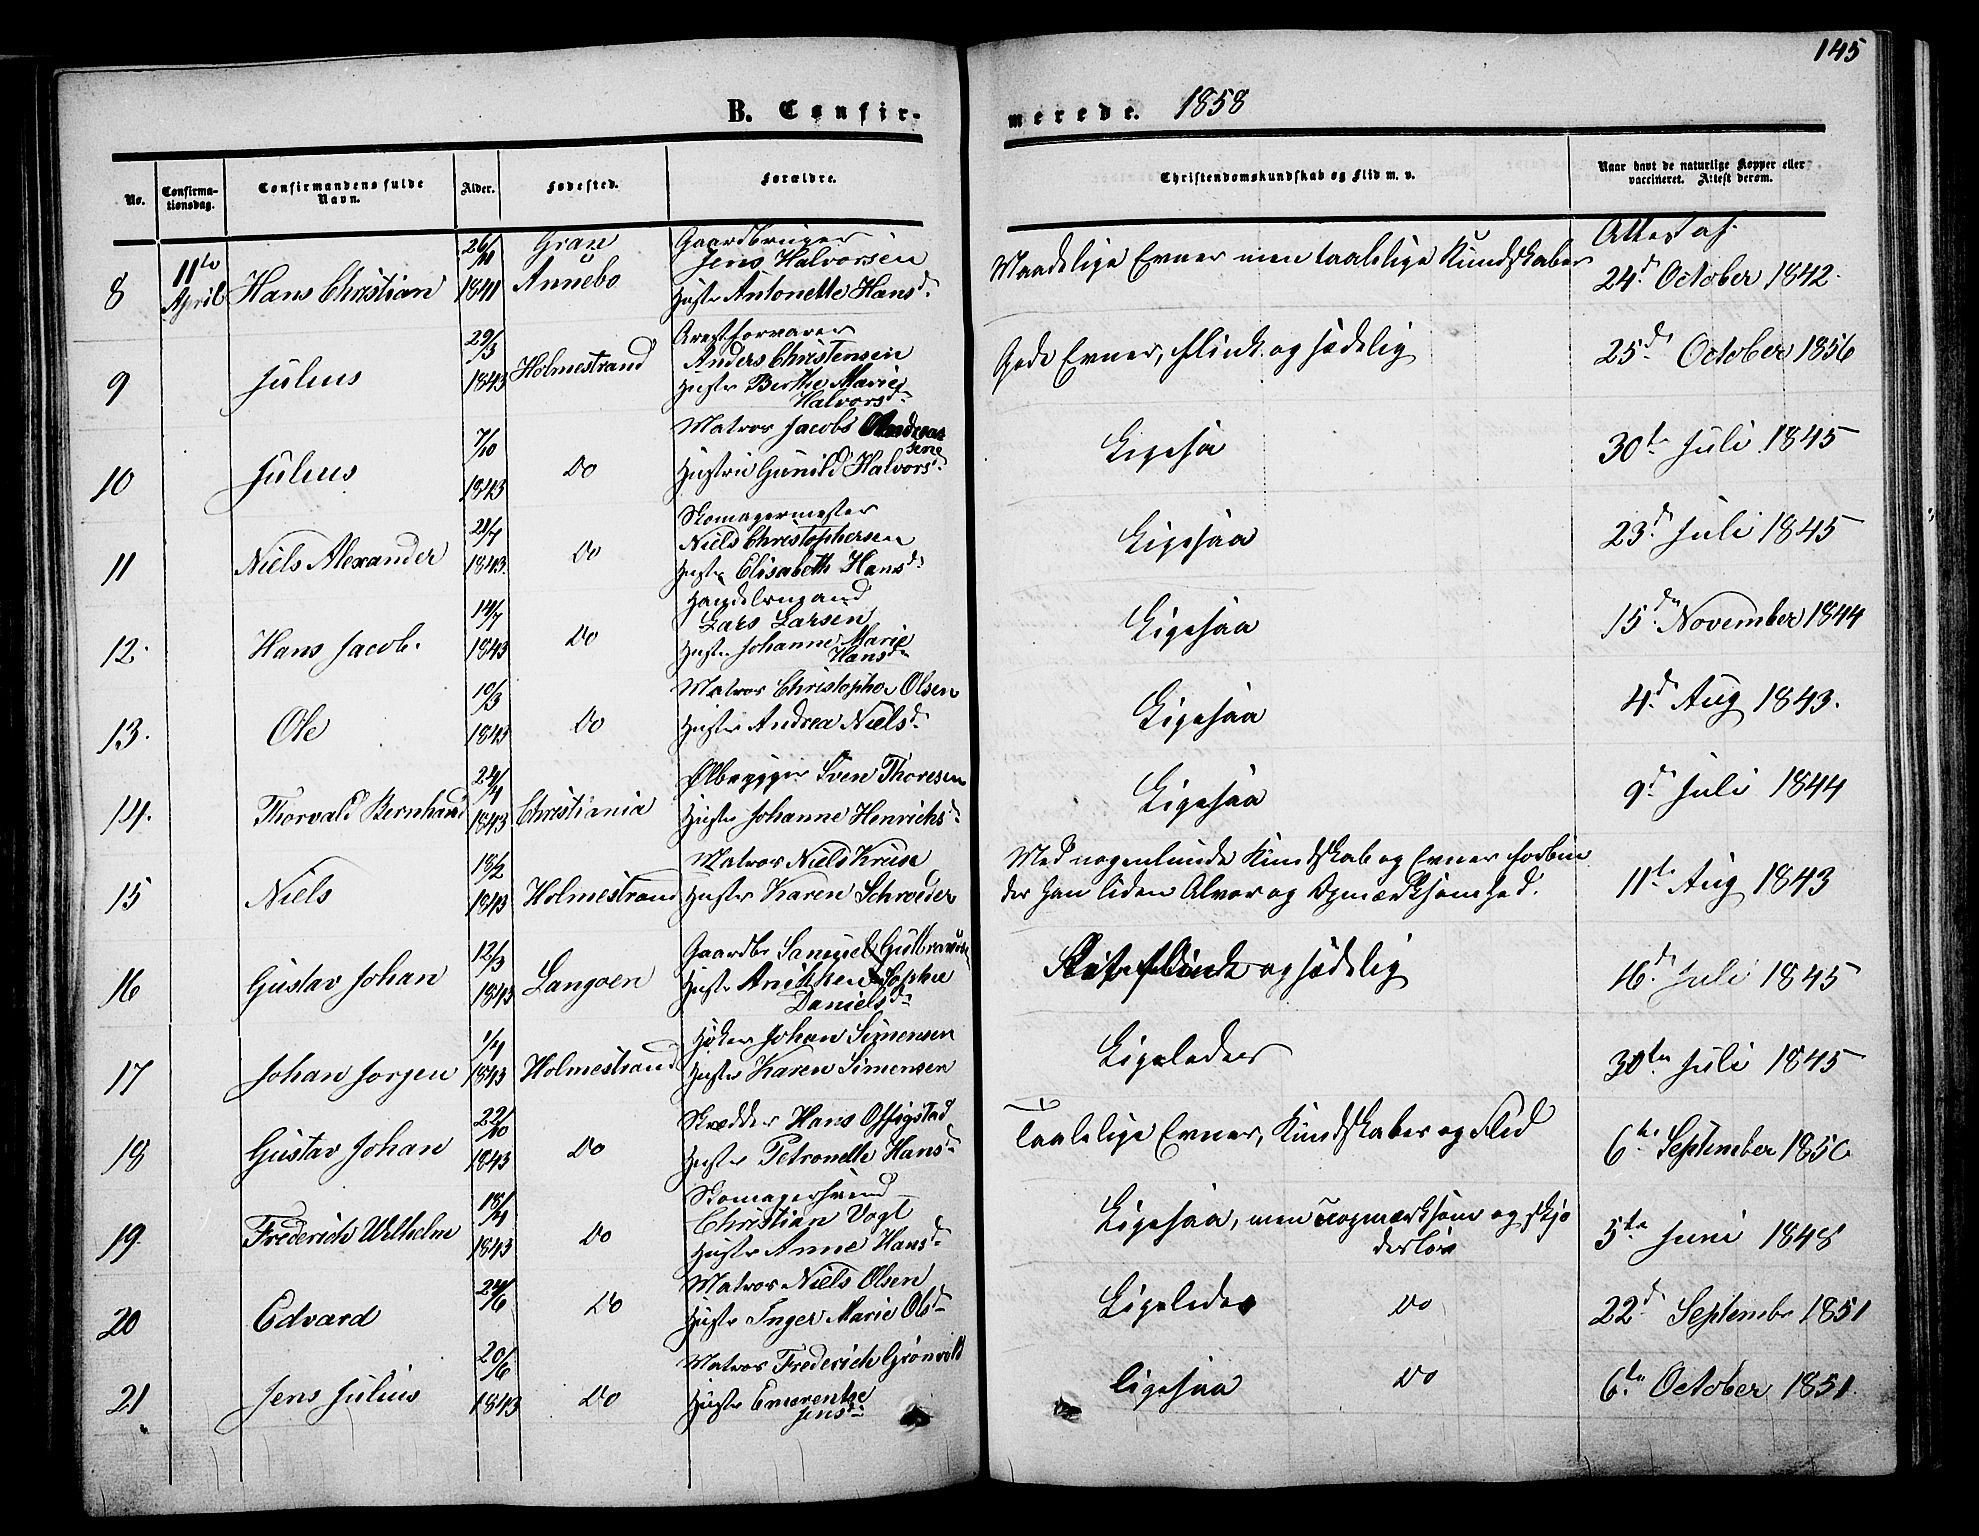 145
B. Confir-
merede. 1858
No.
Confirma-
tionsdag.
Confirmandens fulde
Navn.
Alder.
Fødested.
Forældre.
Christendomskundskab og Flid m. v.
Naar havt de naturlige Kopper eller
vaccineret. Attest derom.
8 11te April Hans Christian 26/11 1841
Annebo
Gaardbruger
Jens Halvorsen
Hustr Antonette Hansd.
Maadelige Evner men taalelige Kundskaber
Attest af
24d October 1842.
9 Julius 29/3 1843 Holmestrand
Arestforvarer
Anders Christensen
Hustr Berthe Marie
Halvorsd.
Gode Evner, flink og sædelig
25d October 1856
10 Julius 7/10 1843 Do
Matros Jacobs Andreas
sene
Hustru Gunild Halvorsd.
Ligesaa
30te Juli 1845
11 Niels Alexander 21/4 1843. Do
Skomagermester
Niels Christophersen
Hustr Elisabeth Hansd.
Ligesaa
23d Juli 1845
12. Hans Jacob. 14/7 1843 Do
Handelsmand
Lars Larsen
Hustr Johanne Marie
Hansd.
Ligesaa
15de November 1844
13. Ole 10/3 1843 Do
Matros Christopher Olsen
Hustr Andrea Nielsd.
Ligesaa
4d Aug 1843.
14. Thorvald Bernhard 24/4 1843 Christiania
Ølbrygger Sven Thoresen
Hustr Johanne Henrichsd.
Ligesaa
9d Juli 1844
15 Niels 18/2 1843 Holmestrand
Matros Niels Kruse
Hustr Karen Schroeder
Med nogenlunde Kundskab og Evner forbin
der han liden Alvor og Opmærksomhed.
11te Aug 1843
16 Gustav Johan 12/3 1843 Langoen
Gaardbr Samuel Gulbrands
Hustr Anikken Sophie
Danielsd.
flink og sædelig
16d Juli 1845
17 Johan Jorgen 1/4 1843 Holmestrand
Høker Johan Simensen
Hustr Karen Simensen
Ligeledes
30te Juli 1845
18 Gustav Johan 22/10 1843 Do
Skrædder Hans Offigstad
Hustr Petronelle Hansd.
Taalelige Evner, Kundskaber og Flid
6te September 1850
19. Frederich Wilhelm 18/4 1843 Do
Skomagersvend
Christian Vogt
Hustr Anne Hansd.
Ligesaa, men uopmærksom og skjø
desløs
5te Juni 1848
20 Edvard 24/6 Do
Matros Niels Olsen
Hustr Inger Marie Olsd.
Ligeledes Do
22d Septembr 1851
21 Jens Julius 20/6 1843 Do
Matros Frederich Grønvold
Hustr Emerentze
Jensd.
ligesaa Do
6te October 1851.